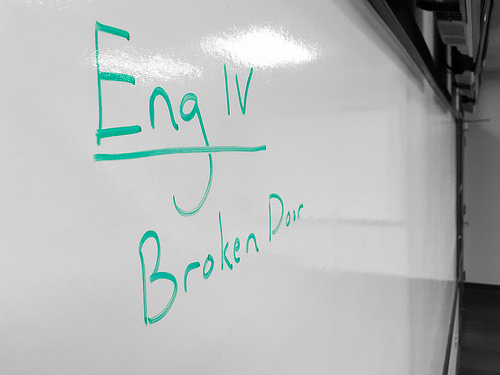 Eng IV
Broken Door